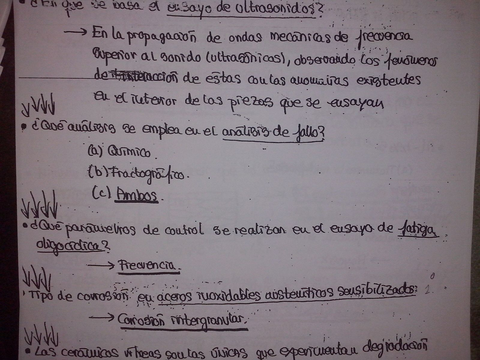 • ¿En que se basa el ensayo de ultrasonidos?
→ En la propagación de ondas mecánicas de frecuencia
superior al sonido (ultrasónicas), observando los fenómenos
de interacción de estas con las anomalías existentes
en el interior de las piezas que se ensayan
• ¿Qué análisis se emplea en el análisis de fallo?
(a) Químico.
(b) Fractográfico.
(c) Ambos.
• ¿Qué parámetros de control se realizan en el ensayo de fatiga
oligocíclica?
→ Frecuencia
• Tipo de corrosión en aceros inoxidables austeníticos sensibilizados:
→ Corrosión intergranular.
• Las cerámicas vítreas son las únicas que experimentan degradación